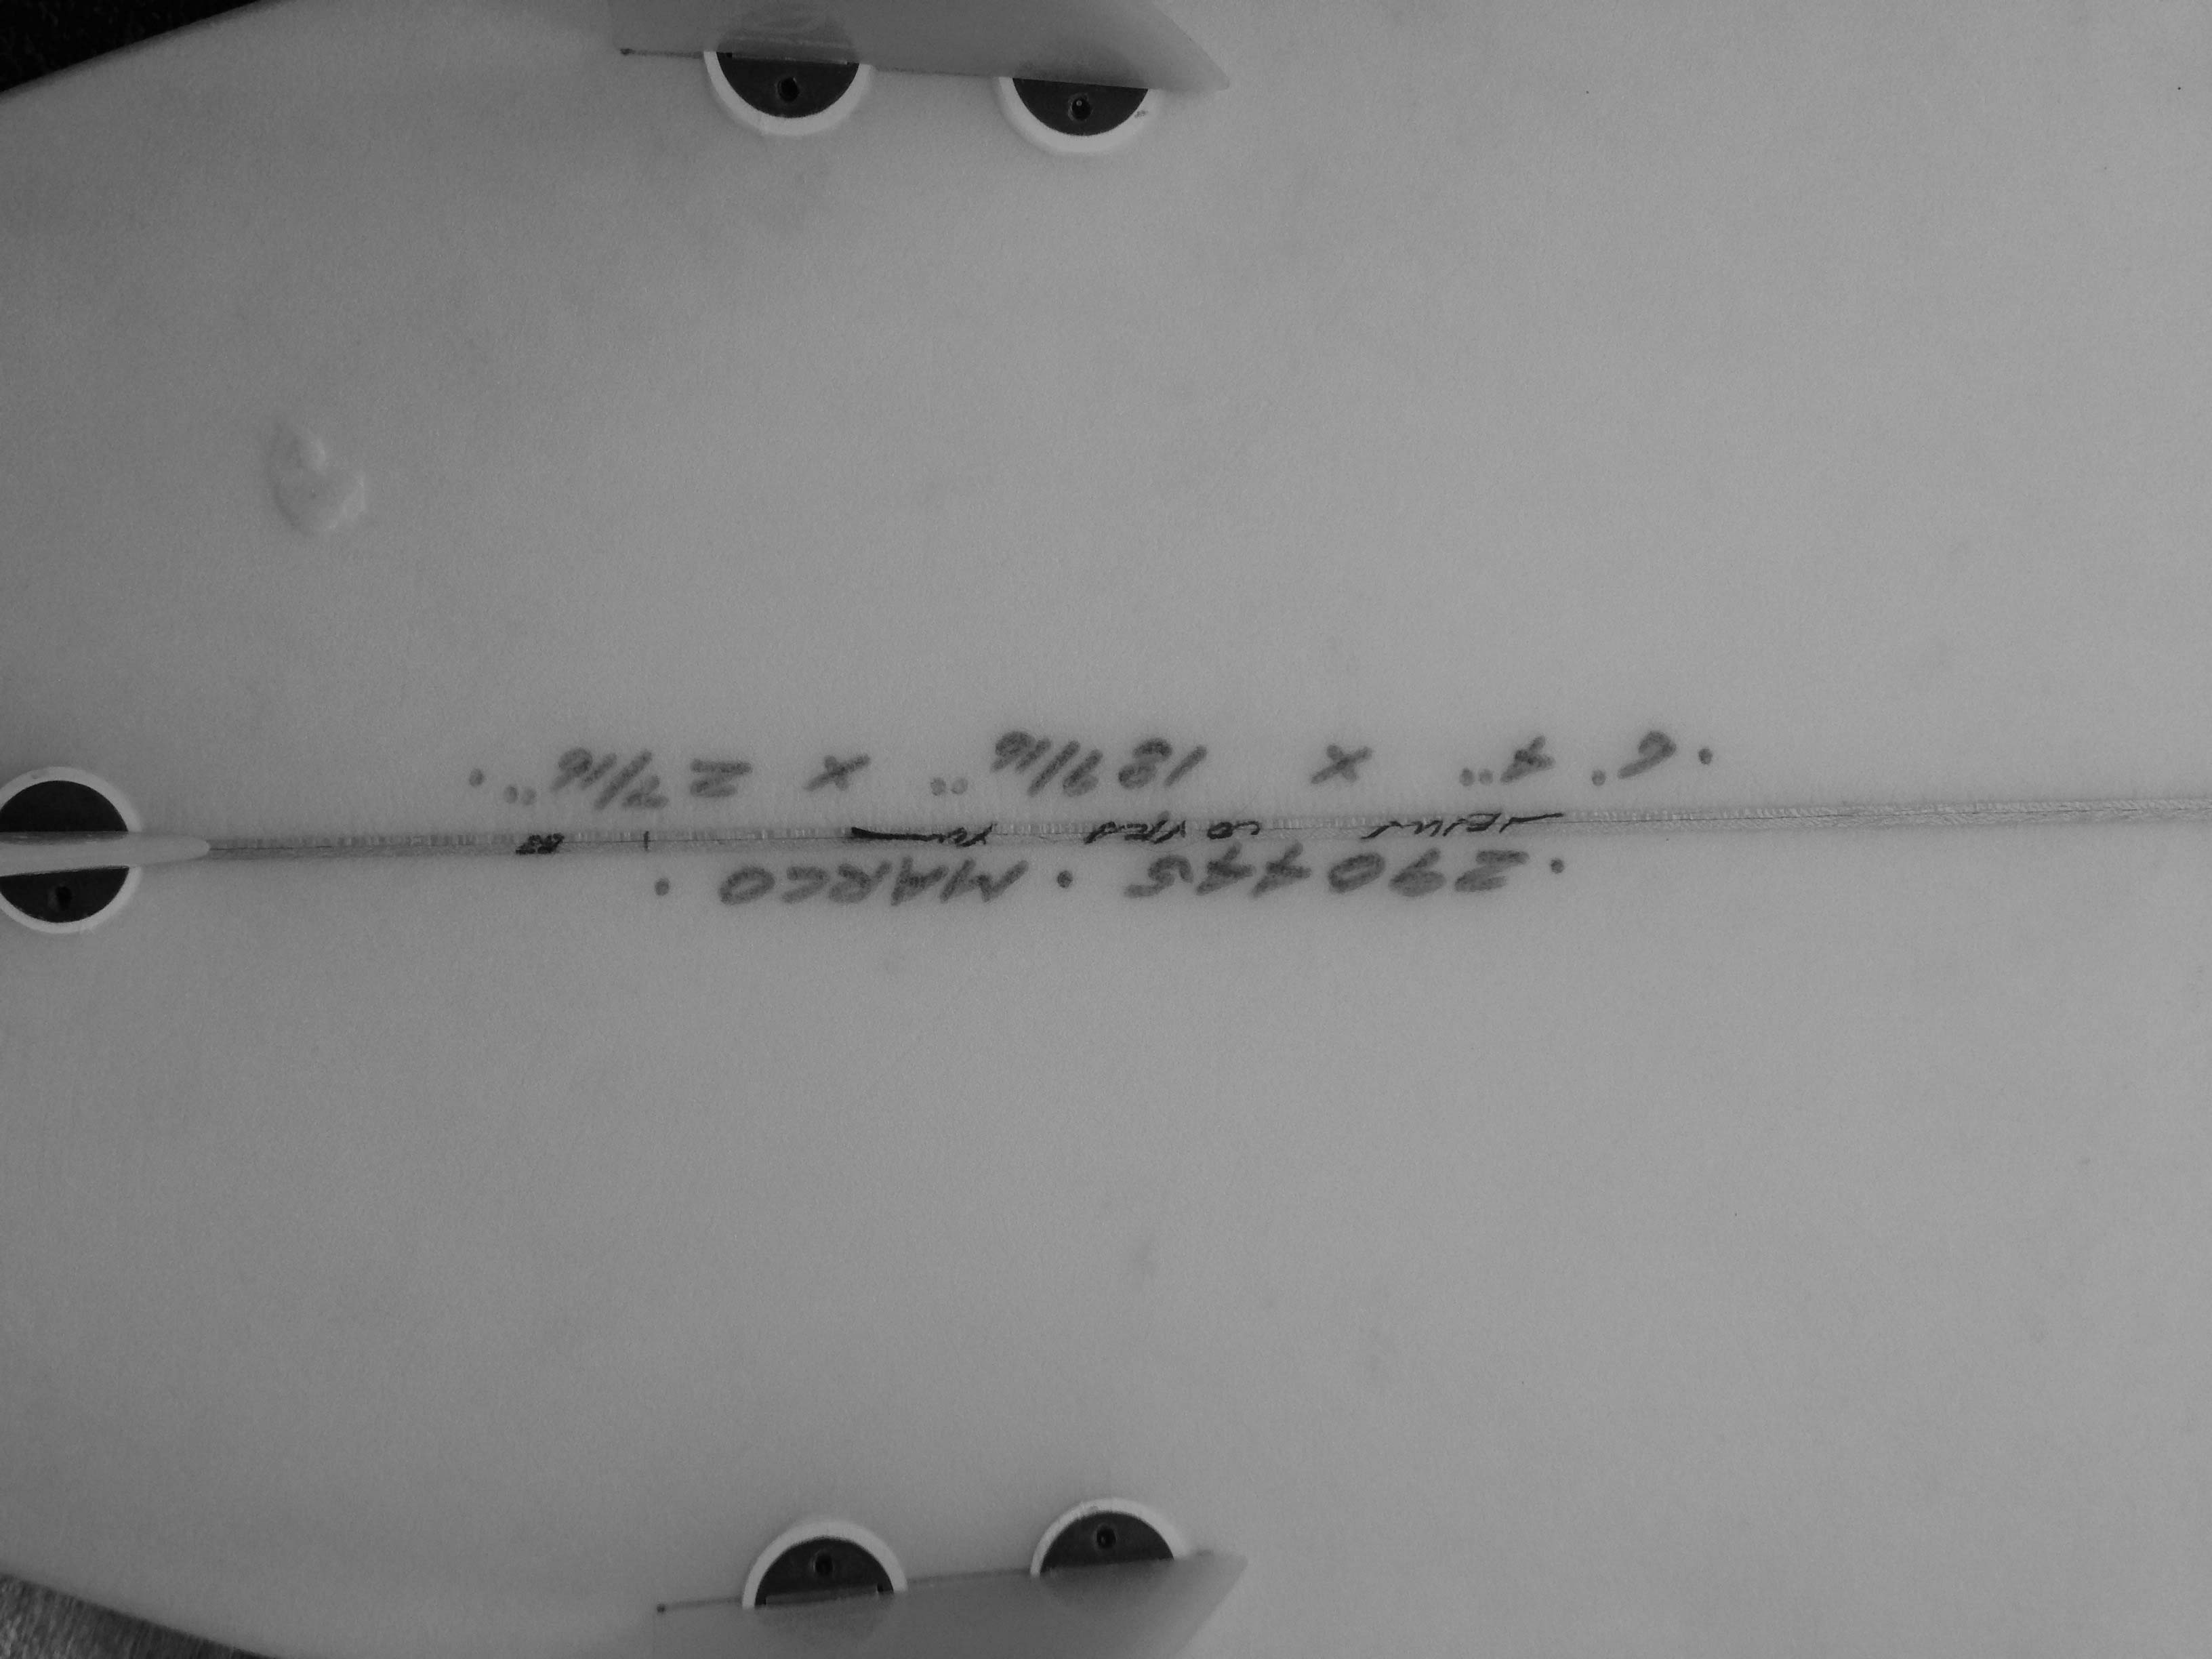 . 290445 . MARCO .
. 6' 4" x 18 9/16" x 2 7/16" .